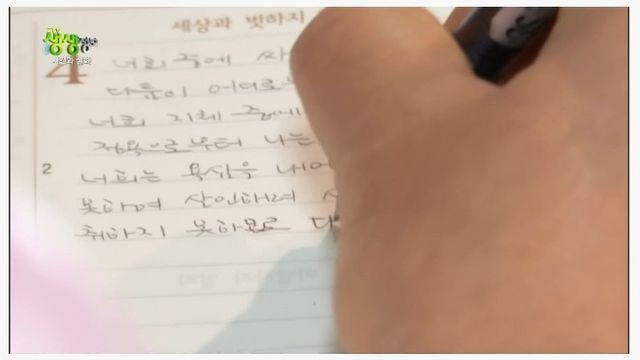 세상과 벗하지
생생정보
사건과 실화
4 너희 중에 싸
다툼이 어디로
너희 지체 중에
정욕으로부터 나는
2 너희는 욕심을 내어
못하며 살인하며
취하지 못하므로 다